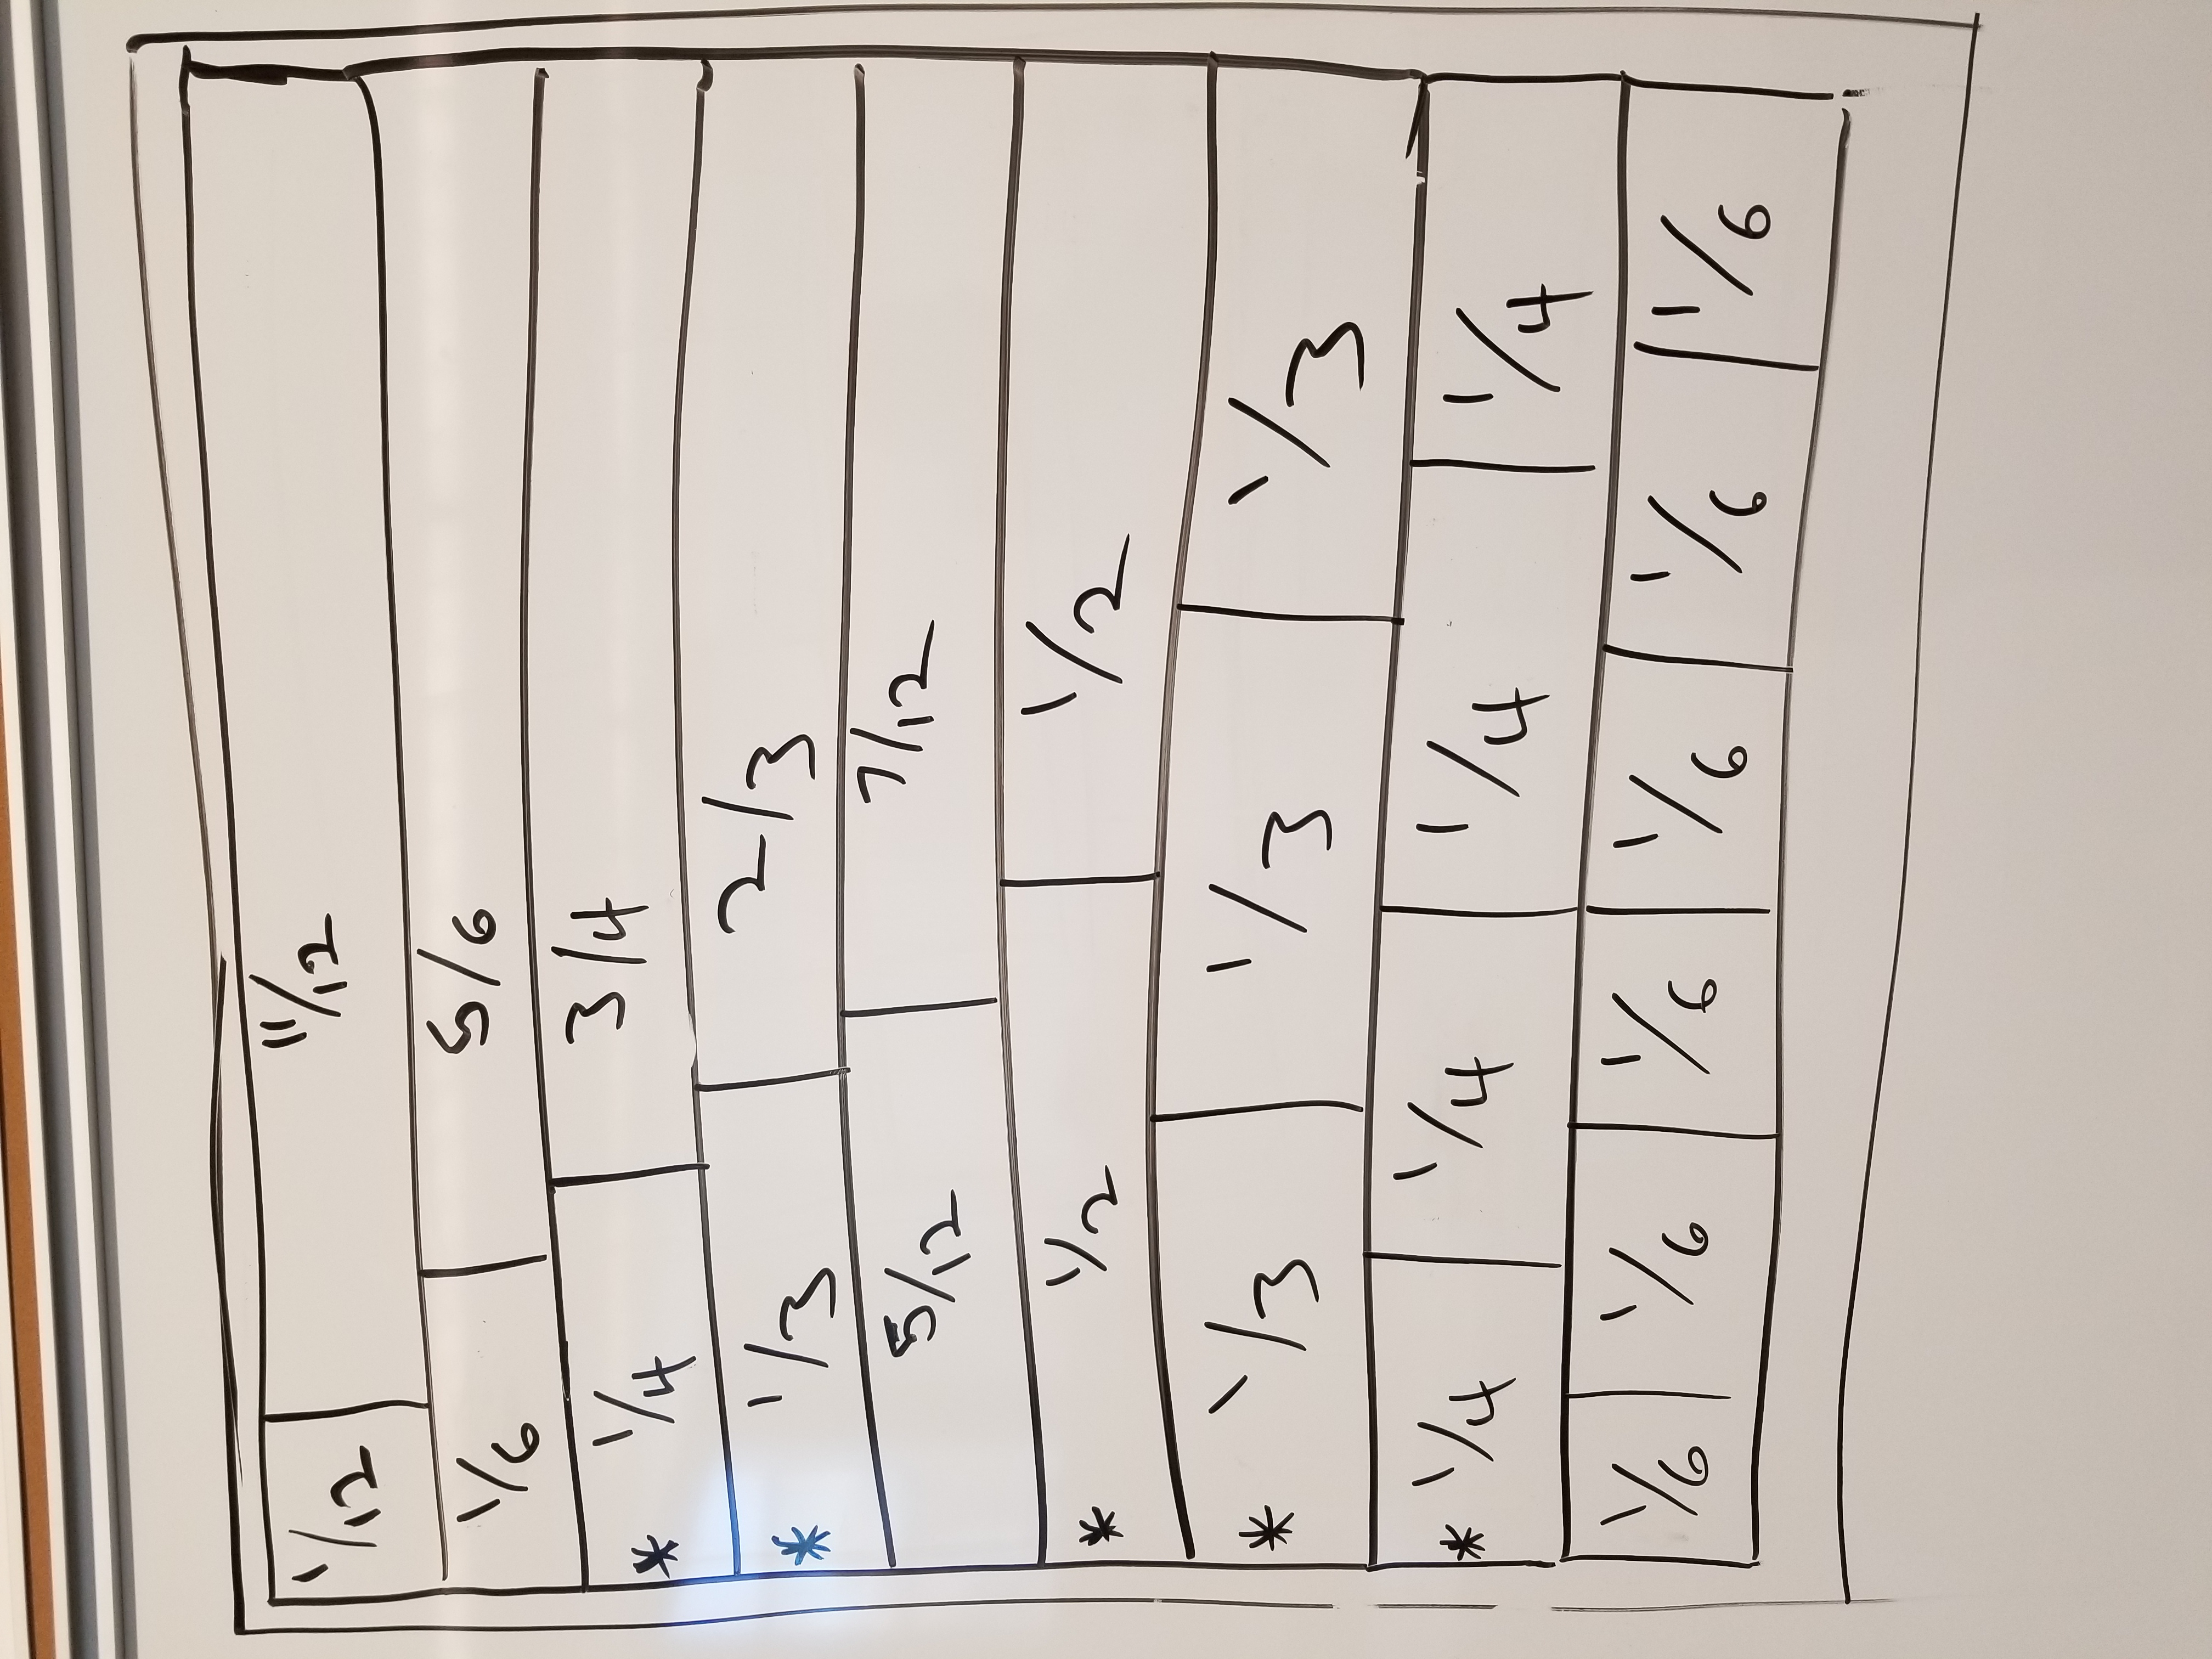 1/12 11/12
1/6 5/6
* 1/4 3/4
* 1/3 2/3
5/12 7/12
* 1/2 1/2
* 1/3 1/3 1/3
* 1/4 1/4 1/4 1/4
1/6 1/6 1/6 1/6 1/6 1/6